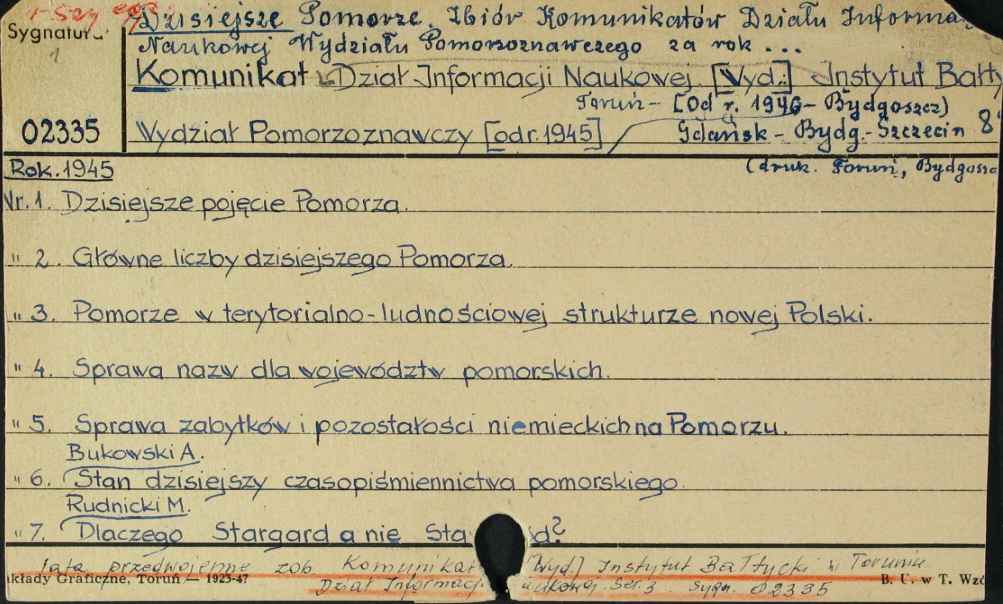 Dzisiejsze Pomorze. Zbiór Komunikatów Działu Informa
Sygnatura
Naukowej Wydziału Pomorzoznawczego za rok ...
Komunikat Dział Informacji Naukowej. [Wyd.:] Instytut Bałty
Toruń - [Od r. 1946 - Bydgoszcz)
02335 Wydział Pomorzoznawczy [od r. 1945] Gdańsk - Bydg. - Szczecin 8
Rok. 1945 (druk. Toruń, Bydgoszc
Nr. 1. Dzisiejsze pojęcie Pomorza.
" 2. Główne liczby dzisiejszego Pomorza.
" 3. Pomorze w terytorialno-ludnościowej strukturze nowej Polski.
" 4. Sprawa nazw dla województw pomorskich.
" 5. Sprawa zabytków i pozostałości niemieckich na Pomorzu.
Bukowski A.
" 6. Stan dzisiejszy czasopiśmiennictwa pomorskiego.
Rudnicki M.
" 7. Dlaczego Stargard a nie Sta d?
lata przedwojenne zob Komunikat [Wyd] Instytut Bałtycki w Toruniu
kłady Graficzne, Toruń — 1923-47 Dział Informacji ukowej. Ser. 3 Sygn. 02335 B. U. w T. Wzó